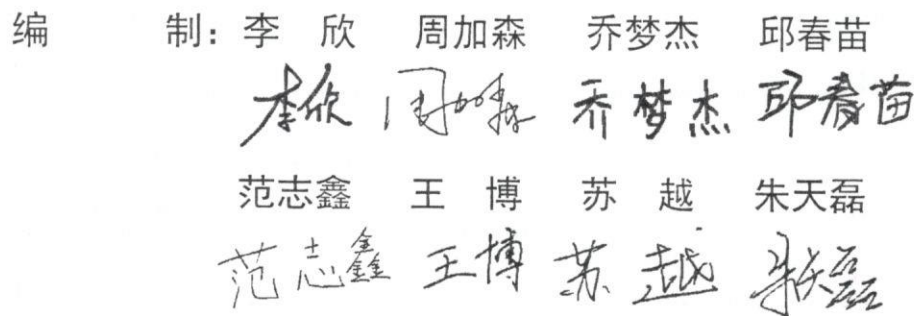 编 制：李 欣 周加森 乔梦杰 邱春苗
李欣 周加森 乔梦杰 邱春苗
范志鑫 王 博 苏 越 朱天磊
范志鑫 王博 苏越 朱天磊